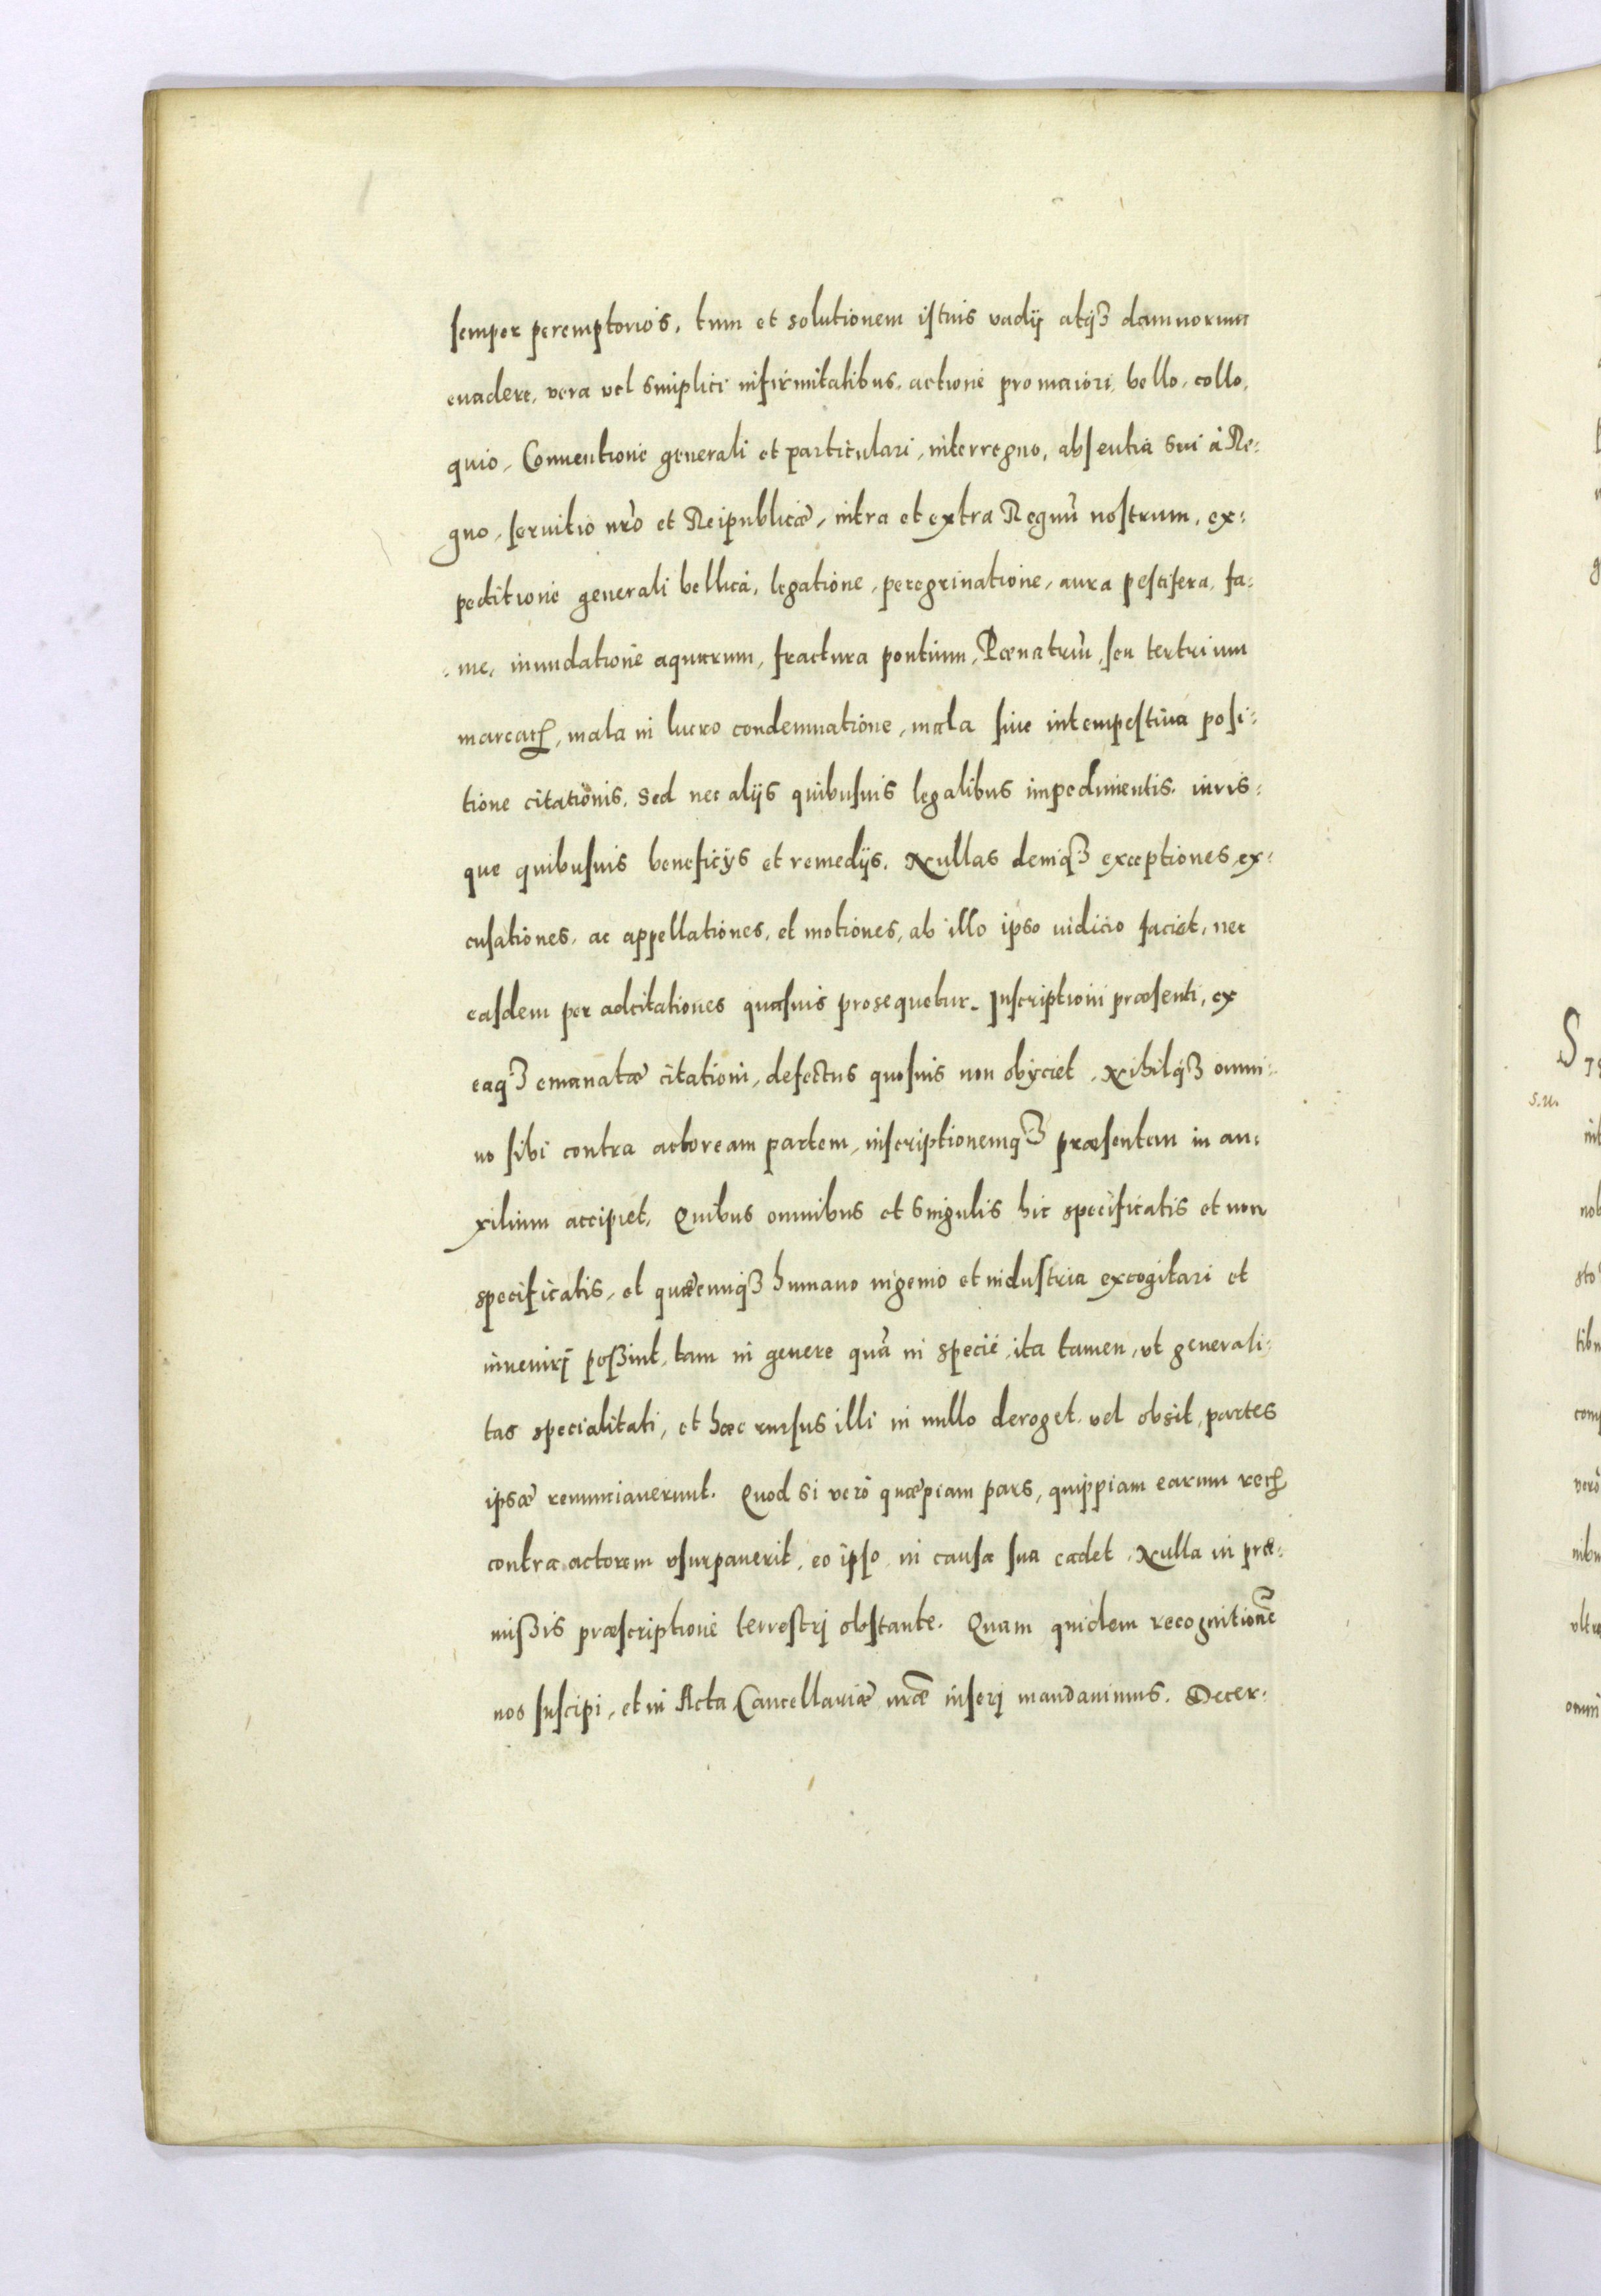 semper peremptorios, tum et solutionem istius vadij atqȝ damnorum
euadere, vera vel simplici infirmitatibus, actione pro maiori, bello, collo,
quio, Conuentione generali et particulari, interregno, absentia sui à Re:
gno, seruitio nro et Reipublicæ, intra et extra Regnũ nostrum, ex:
peditione generali bellica, legatione, peregrinatione, aura pestifera, fa:
me, inundatione aquarum, fractura pontium, Pœnatriũ, seu tertrium
marcarꝝ, mala in lucro condemnatione, mala siue intempestiua posi:
tione citationis, sed nec alijs quibusuis legalibus impedimentis, iuris:
que quibusuis beneficijs et remedijs. Nullas deniqȝ exceptiones, ex:
cusationes, ac appellationes, et motiones, ab illo ipso iudicio faciet, nec
easdem per adcitationes quasuis prosequetur. Inscriptioni præsenti, ex
eaqȝ emanatæ citationi, defectus quosuis non obijciet, Nihilqȝ omni:
no sibi contra actoream partem, inscriptionemqȝ præsentem in au:
xilium accipiet. Quibus omnibus et singulis hic specificatis et non
specificatis, et quæcunqȝ humano ingenio et industria excogitari et
inuenirj poßint, tam in genere quã in specie, ita tamen, vt generali:
tas specialitati, et hæc rursus illi in nullo deroget vel obsit, partes
ipsæ renunciauerunt. Quod si verò quæpiam pars, quippiam earum rerꝝ
contra actorem vsurpauerit, eo ipso in causa sua cadet, Nulla in præ:
mißis præscriptione terrestrj obstante. Quam quidem recognitionẽ
nos suscipi, et in Acta Cancellariæ nræ inserj mandauimus. Decer:
S
s.u.